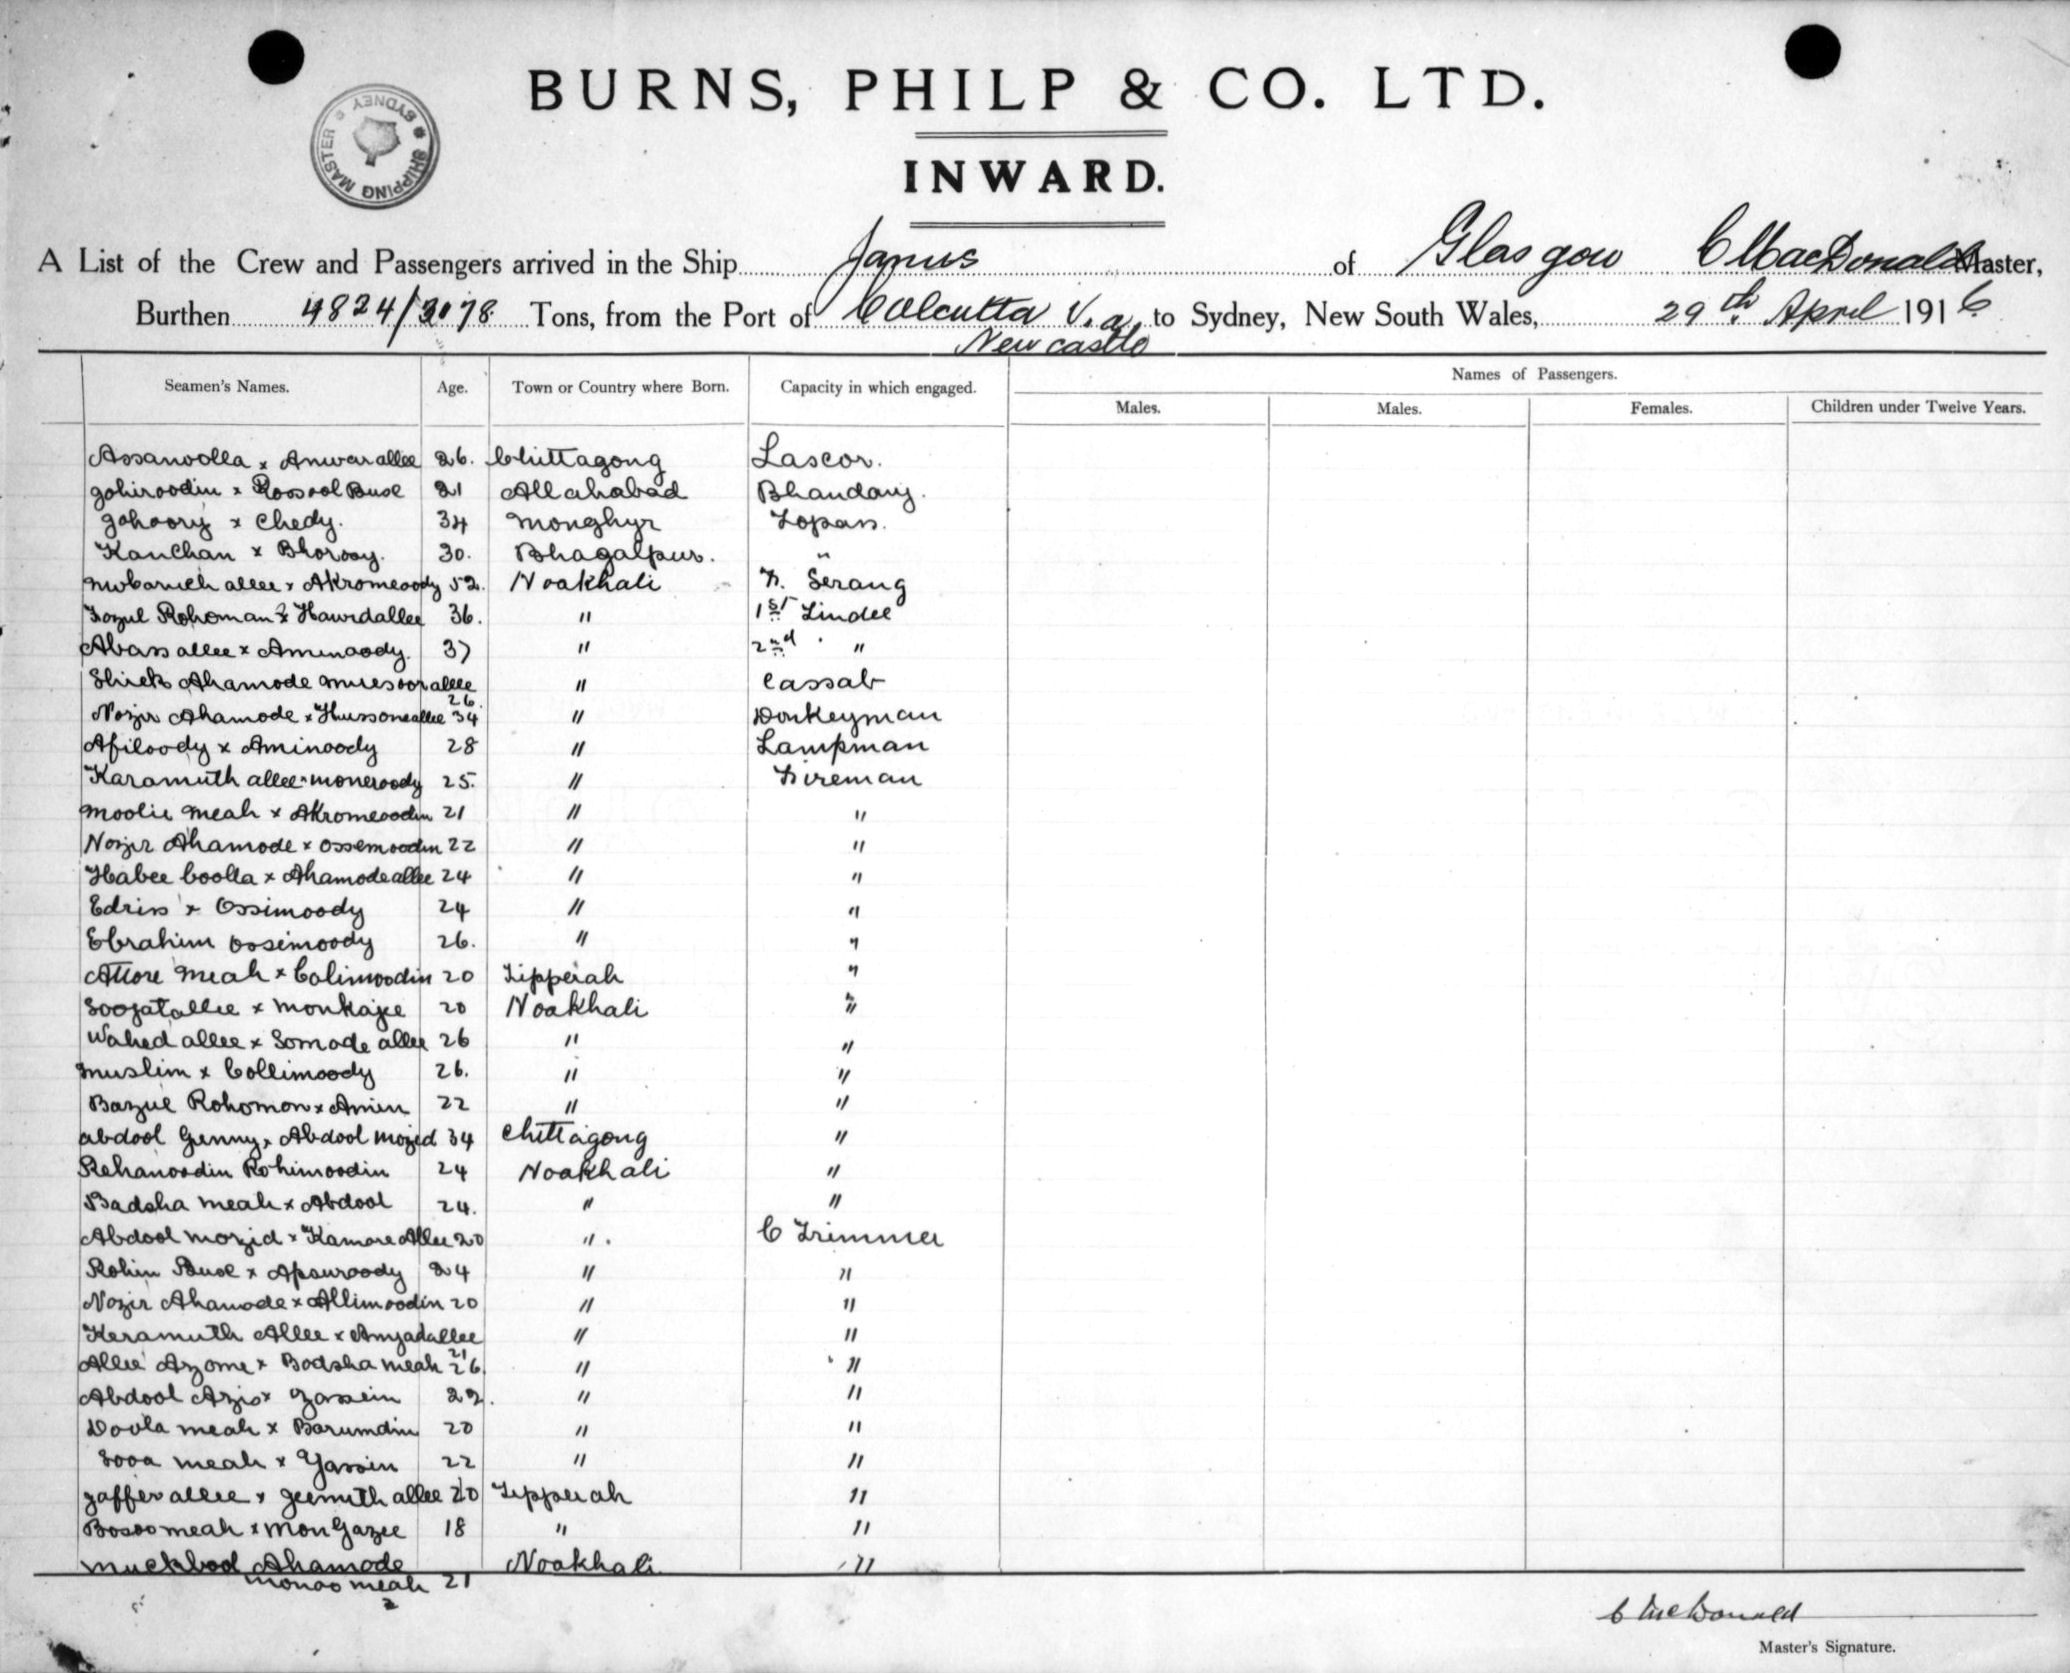 BURNS, PHILP & CO. LTD.
SHIPPING MASTER * SYDNEY *
INWARD.
A List of the Crew and Passengers arrived in the Ship Janus of Glasgow C MacDonald Master,
Burthen 4824/3078 Tons, from the Port of Calcutta V.a to Sydney, New South Wales, 29th April 1916
Newcastle
Seamen's Names. Age. Town or Country where Born. Capacity in which engaged. Names of Passengers.
Males. Males. Females. Children under Twelve Years.
Assanoolla x Anwarallee 26. Chittagong Lascor.
Gohiroodin x Rossool Buse 21 Allahabad Bhandary.
Johoory x Chedy. 34 Monghyr Topass.
Kanchan x Bhorosy. 30. Bhagalpur. "
Mubaruch allee x Akromeoody 52. Noakhali F. Serang
Fozul Rohoman x Howrdallee 36. " 1st Tindee
Abass allee x Aminoody. 37 " 2nd "
Shiek Ahamode Munsoorallee " Cassab
26.
Nozir Ahamode x Hussoneallee 34 " Donkeyman
Afiloody x Aminoody 28 " Lampman
Karamuth allee x Moneroody 25. " Fireman
Moolie Meah x Akromeoodin 21 " "
Nozir Ahamode x Ossemoodin 22 " "
Habee boolla x Ahamodeallee 24 " "
Edriss x Ossimoody 24 " "
Ebrahim Ossimoody 26. " "
Attore Meah x Colimoodin 20 Tipperah "
Soojatallee x Monkajee 20 Noakhali "
Wahed allee x Somode allee 26 " "
Muslim x Collimoody 26. " "
Bazul Rohomon x Amin 22 " "
Abdool Gunny x Abdool Mozid 34 Chittagong "
Rehanoodin Rohimoodin 24 Noakhali "
Badsha Meah x Abdool 24. " "
Abdool Mozid x Kamore Allee 20 " . C Trimmer
Rohim Buse x Apsuroody 24 " "
Nozir Ahamode x Allimoodin 20 " "
Keramuth Allee x Amjadallee " "
21
Allie Azome x Bodsha Meah 26. " "
Abdool Azis x Yassein 22. " "
Doola Meah x Barumdin 20 " "
Sooa Meah x Yassin 22 " "
Jaffer allee x Jeemuth allee 20 Tipperah "
Bosoo Meah x Mon Gazee 18 " "
Muckbool Ahamode Noakhali "
Monoo Meah 21
C McDonald
Master's Signature.